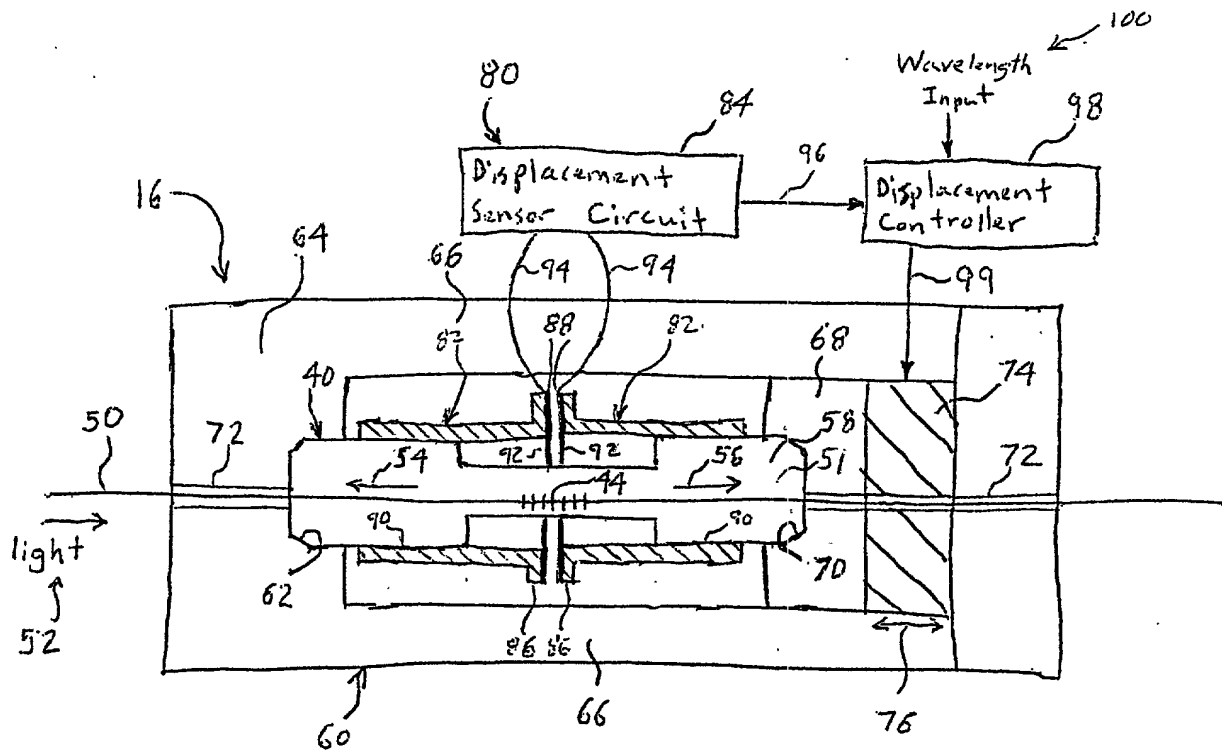 100
Wavelength
Input
80
84
98
Displacement
Sensor Circuit
96
Displacement
Controller
16
64
66
94
94
99
82
88
82
68
74
40
58
50
72
54
92
92
56
51
72
44
light
90
90
52
62
70
86
86
60
66
76